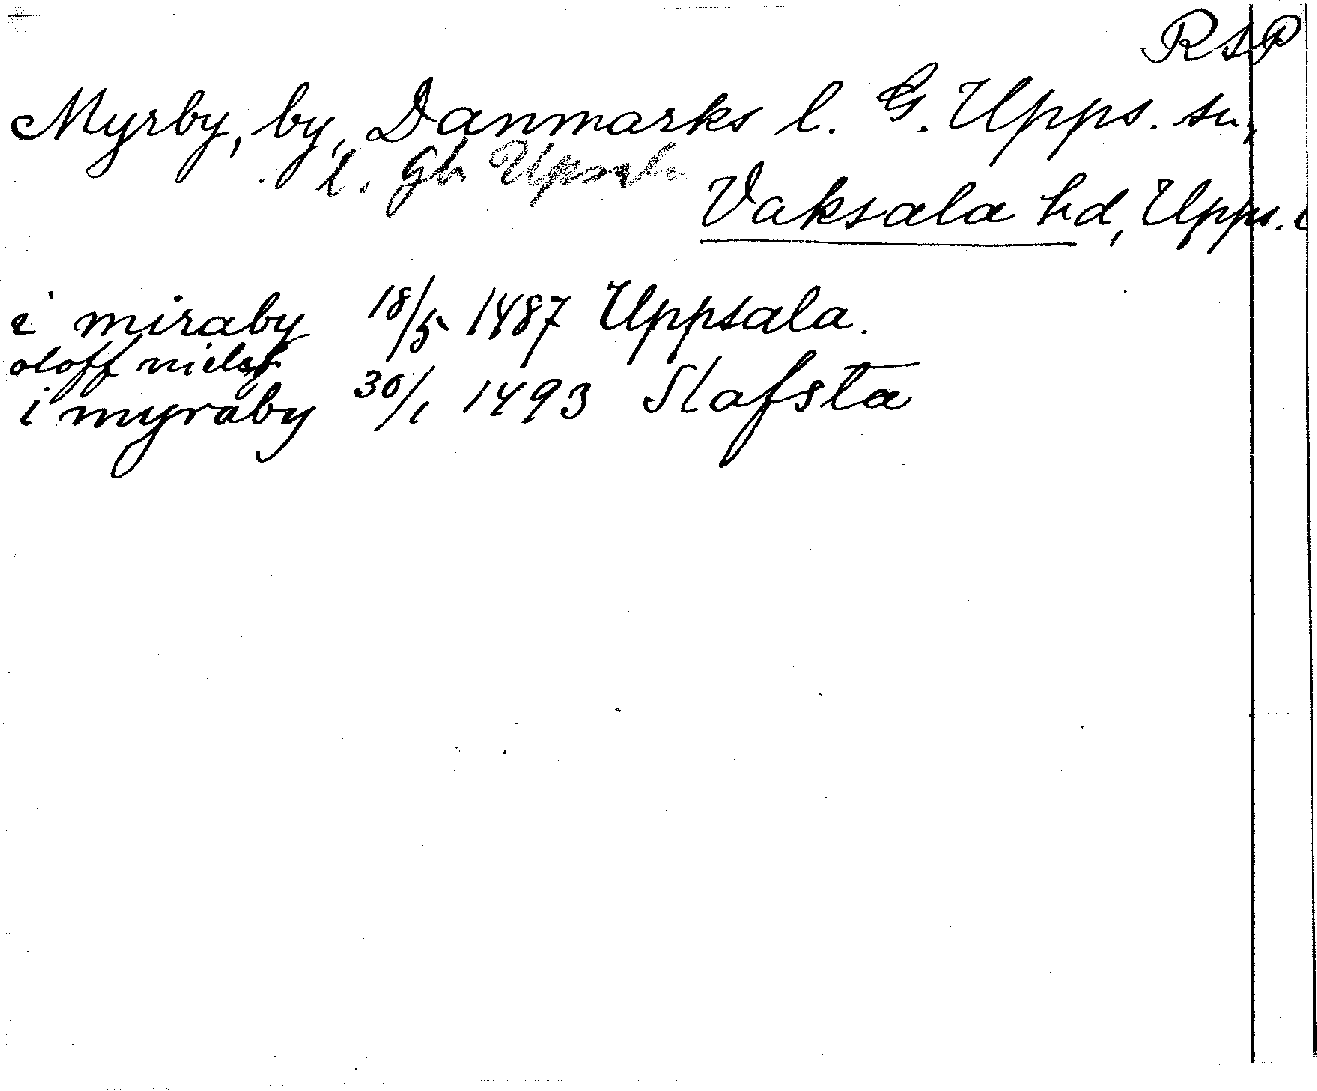 RAP
Myrby, by, Danmarks l. G. Upps. sn,
l. Gl. Upsala
Vaksala hd, Upps. l
i miraby 18/5 1487 Uppsala.
oloff nielss
i myraby 30/1 1493 Slafsta